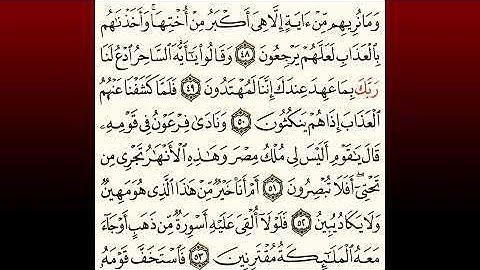 وَمَا نُرِيهِم مِّنْ ءَايَةٍ إِلَّا هِىَ أَكْبَرُ مِنْ أُخْتِهَا ۖ وَأَخَذْنَٰهُم
بِٱلْعَذَابِ لَعَلَّهُمْ يَرْجِعُونَ ٤٨ وَقَالُوا۟ يَٰٓأَيُّهَ ٱلسَّاحِرُ ٱدْعُ لَنَا
رَبَّكَ بِمَا عَهِدَ عِندَكَ إِنَّنَا لَمُهْتَدُونَ ٤٩ فَلَمَّا كَشَفْنَا عَنْهُمُ
ٱلْعَذَابَ إِذَا هُمْ يَنكُثُونَ ٥٠ وَنَادَىٰ فِرْعَوْنُ فِى قَوْمِهِۦ
قَالَ يَٰقَوْمِ أَلَيْسَ لِى مُلْكُ مِصْرَ وَهَٰذِهِ ٱلْأَنْهَٰرُ تَجْرِى مِن
تَحْتِىٓ ۖ أَفَلَا تُبْصِرُونَ ٥١ أَمْ أَنَا۠ خَيْرٌ مِّنْ هَٰذَا ٱلَّذِى هُوَ مَهِينٌ
وَلَا يَكَادُ يُبِينُ ٥٢ فَلَوْلَآ أُلْقِىَ عَلَيْهِ أَسْوِرَةٌ مِّن ذَهَبٍ أَوْ جَآءَ
مَعَهُ ٱلْمَلَٰٓئِكَةُ مُقْتَرِنِينَ ٥٣ فَٱسْتَخَفَّ قَوْمَهُۥ